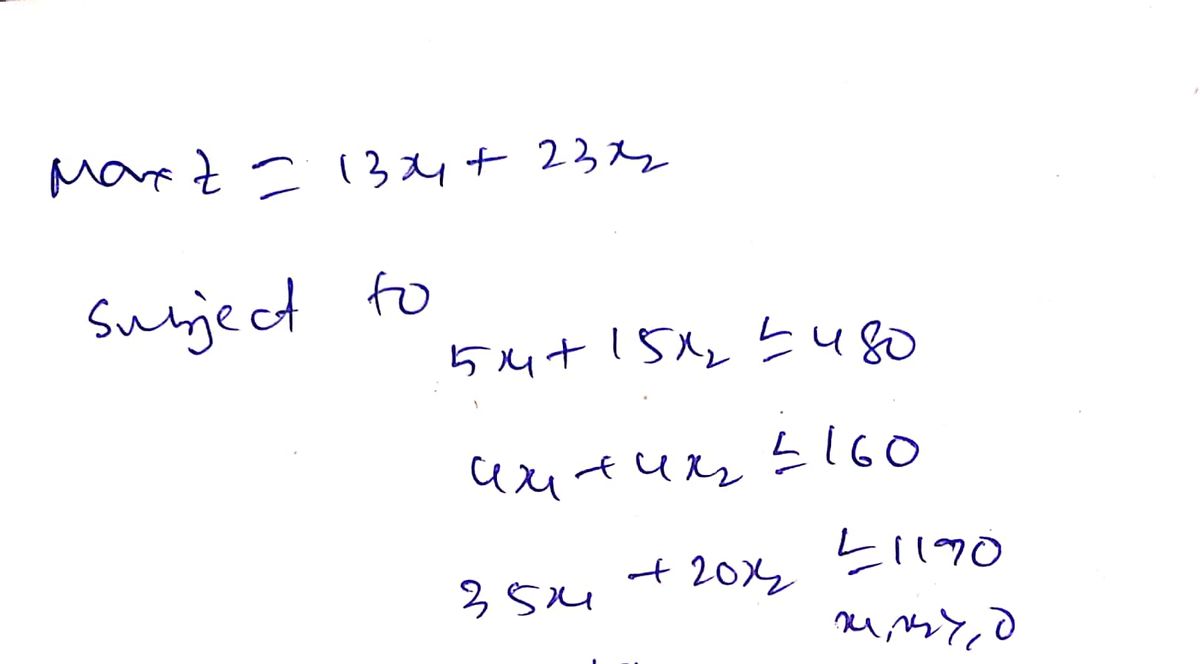 Max Z = 13x₁ + 23x₂
Subject to
5x₁ + 15x₂ ≤ 480
4x₁ + 4x₂ ≤ 160
35x₁ + 20x₂ ≤ 1190
x₁, x₂ ≥ 0